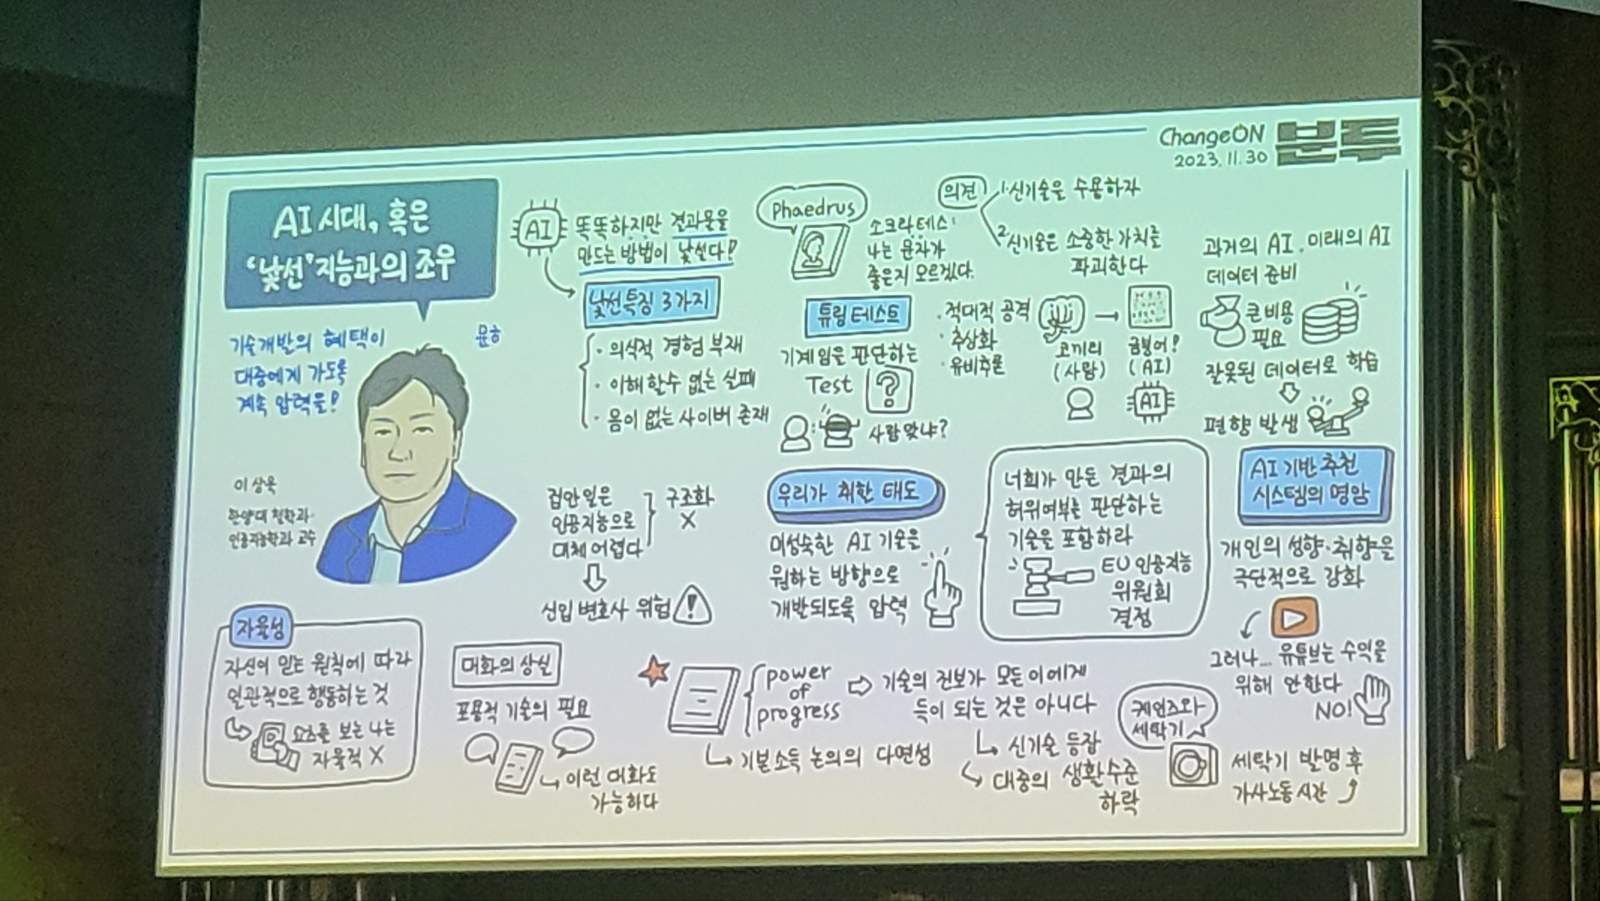 ChangeON
2023. 11. 30
분투
AI 시대, 혹은
'낯선' 지능과의 조우
기술개발의 혜택이
대중에게 가도록
계속 압력을!
이상욱
한양대 철학과·
인공지능학과 교수
AI
똑똑하지만 결과물을
만드는 방법이 낯설다!
낯선 특징 3가지
· 의식적 경험 부재
· 이해할수 없는 실패
· 몸이 없는 사이버 존재
Phaedrus
소크라테스:
나는 문자가
좋은지 모르겠다.
의견
1 신기술을 수용하자
2 신기술은 소중한 가치를
파괴한다
튜링 테스트
기계임을 판단하는
Test
?
사람 맞냐?
· 적대적 공격
· 추상화
· 유비추론
코끼리
(사람)
금붕어!
(AI)
AI
과거의 AI. 미래의 AI
데이터 준비
큰 비용
필요
잘못된 데이터로 학습
편향 발생
겁안일은
인공지능으로
대체 어렵다
구조화
X
신입 변호사 위험
!
우리가 취한 태도
미성숙한 AI 기술을
원하는 방향으로
개발되도록 압력
너희가 만든 결과의
허위여부를 판단하는
기술을 포함하라
EU 인공지능
위원회
결정
AI 기반 추천
시스템의 명암
개인의 성향·취향을
극단적으로 강화
그러나... 유튜브는 수익을
위해 안한다
NO!
자율성
자신이 믿는 원칙에 따라
일관적으로 행동하는 것
쇼츠를 보는 나는
자율적 X
대화의 상실
포용적 기술의 필요
이런 대화도
가능하다
power
of
progress
기술의 진보가 모든 이에게
득이 되는 것은 아니다
기본소득 논의의 다면성
신기술 등장
대중의 생활수준
하락
케인즈와
세탁기
세탁기 발명 후
가사노동 시간